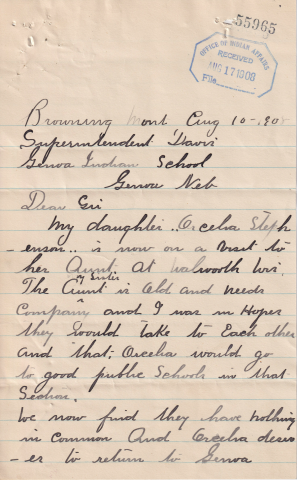 55965
OFFICE OF INDIAN AFFAIRS
RECEIVED
AUG 17 1908
File
Browning Mont Aug 10-1908
Superintendent Davis
Genoa Indian School
Genoa Neb
Dear Sir
My daughter .. Orcelia Steph
-enson.. is now on a visit to
her Aunt. at Walworth Wis.
my Sister
The Aunt is Old and needs
Company and I was in Hopes
they would take to Each other
and that; Orcelia would go
to good public Schools in that
Section.
We now find they have nothing
in common And Orcelia desir
-er to return to Genoa